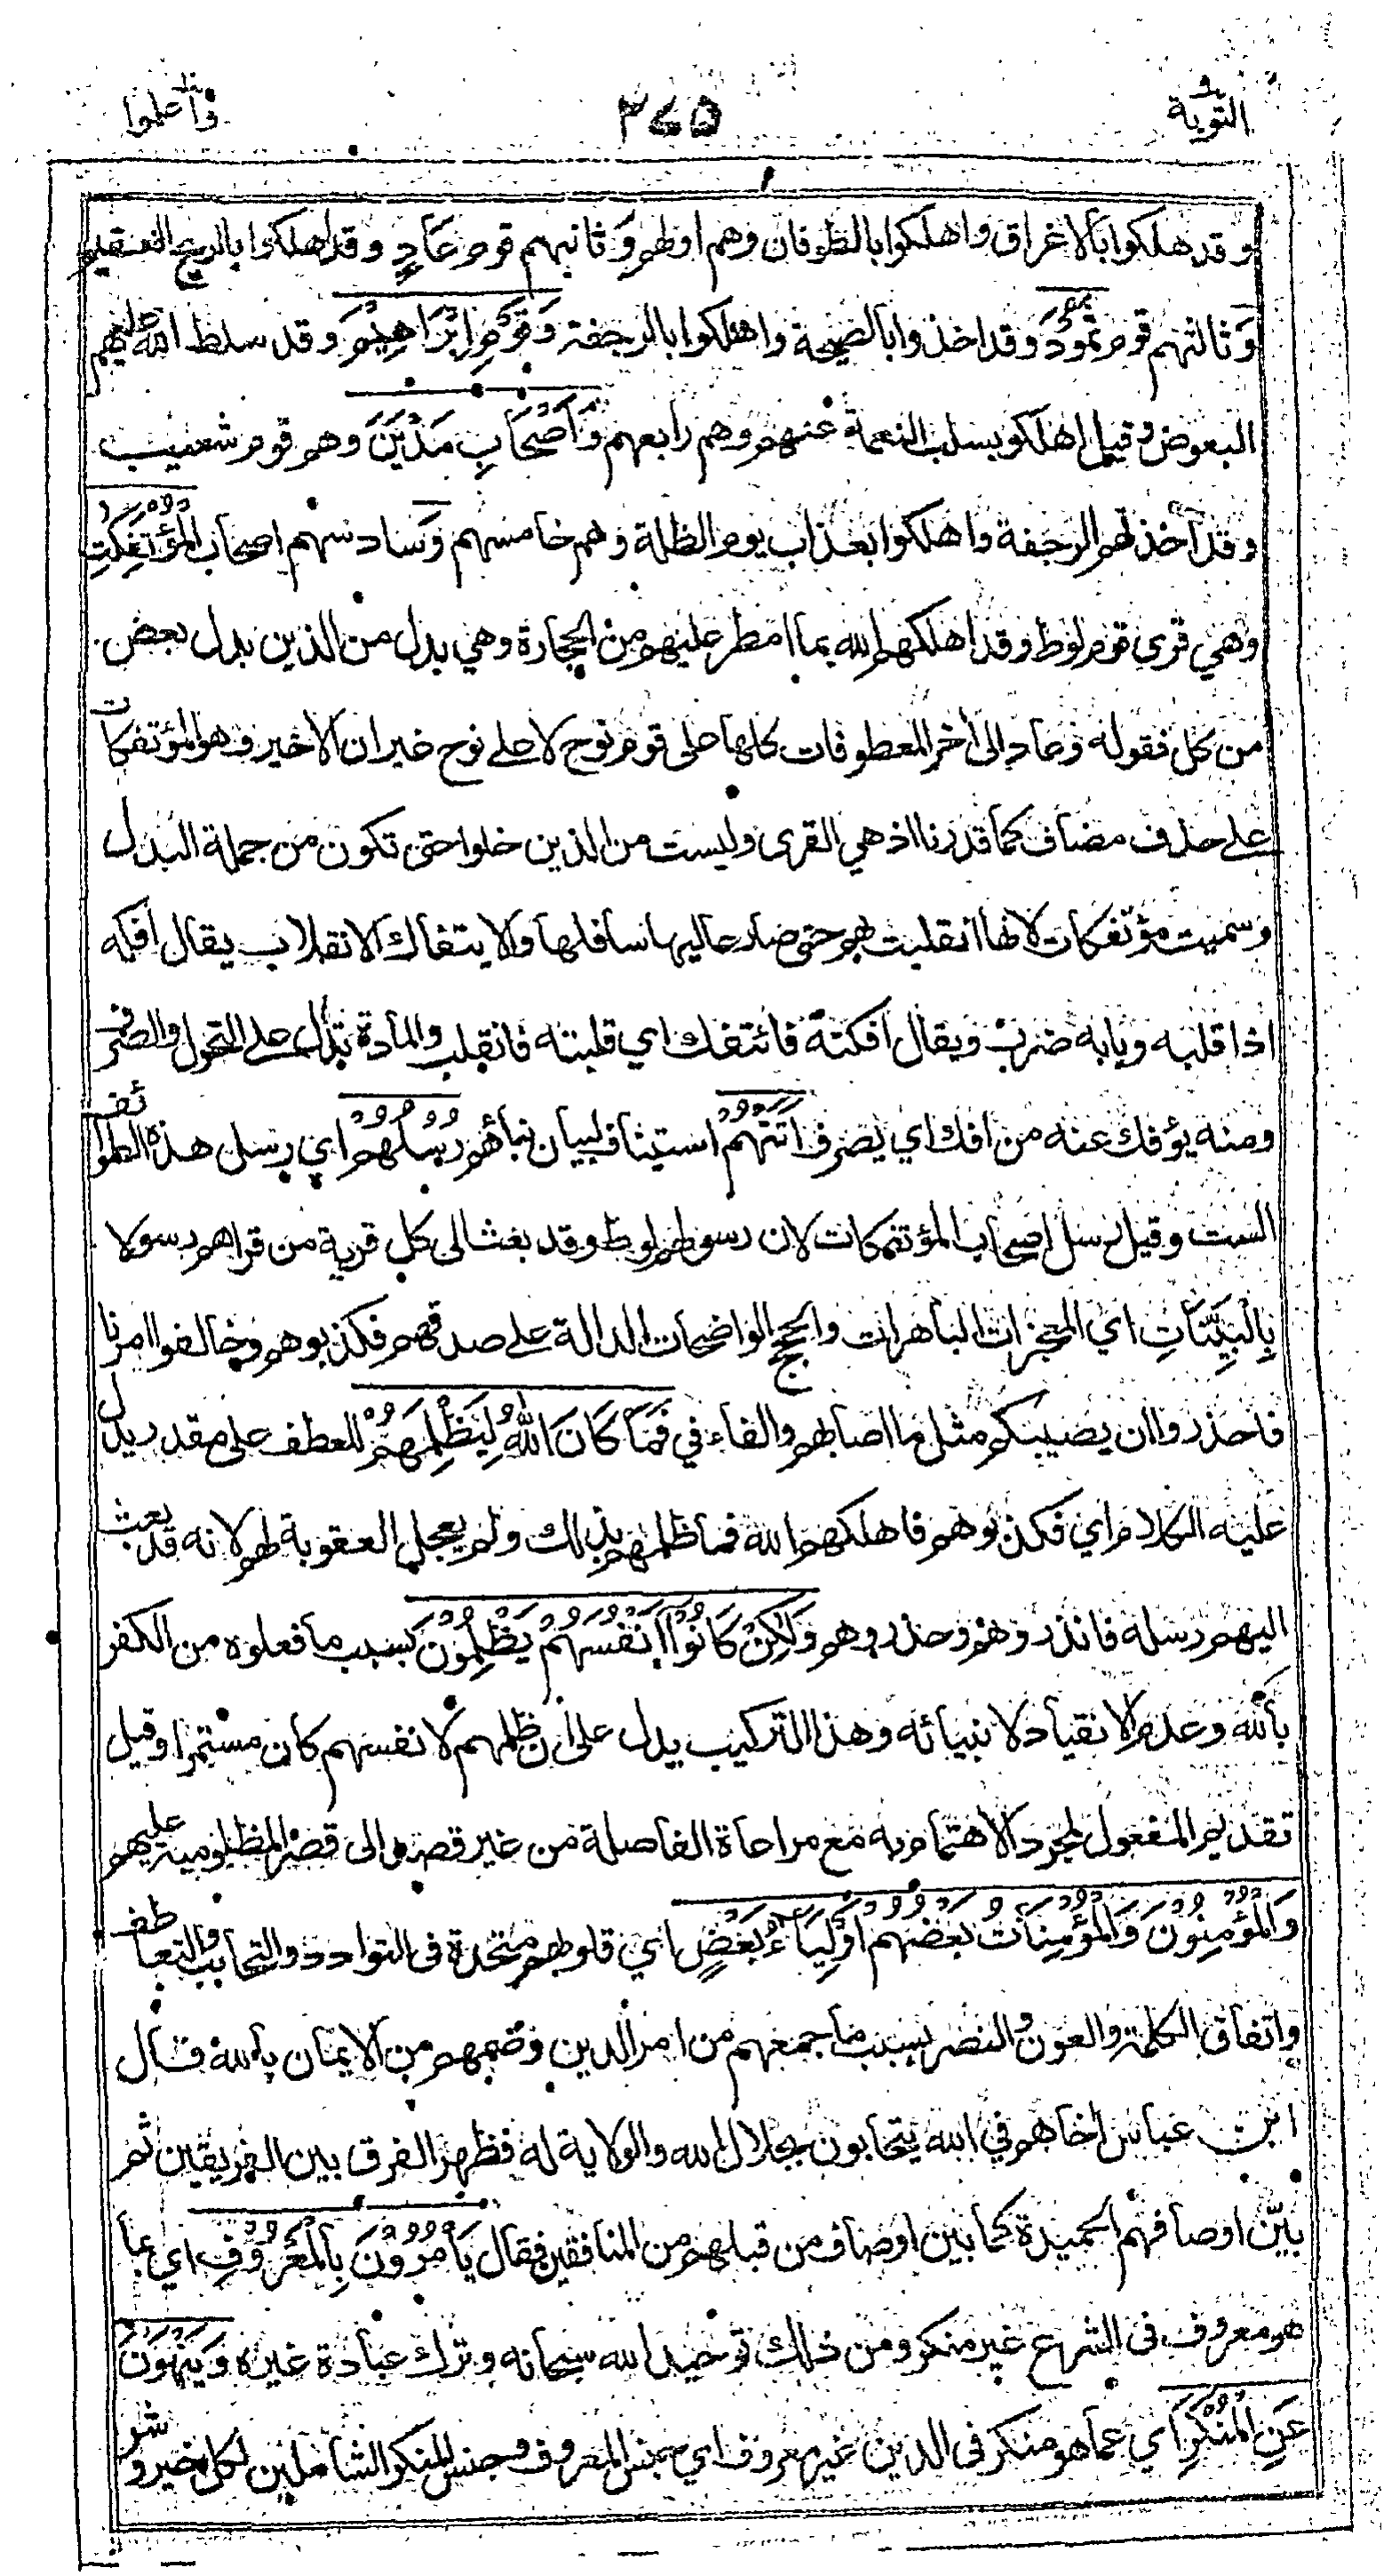 التوبة ٢٧٥ واعلموا
وقد هلكوا بالاغراق واهلكوا بالطوفان وهم اولهم وَثانيهم قوم عَادٍ وقد اهلكوا بالريح العقيم
وَثالثهم قوم ثَمُودَ وقد اخذوا بالصيحة واهلكوا بالرجفة وَقَوْمِ اِبْرَاهِيْمَ وقد سلط الله عليهم
البعوض وقيل اهلكو بسلب النعمة عنهم وهم رابعهم وَاَصْحَابِ مَدْيَنَ وهم قوم شعيب
وقد اخذتهم الرجفة واهلكوا بعذاب يوم الظلة وهم خامسهم وَسادسهم اصحاب المُؤْتَفِكٰتِ
وهي قرى قوم لوط وقد اهلكهم الله بما امطر عليهم من الحجارة وهي بدل من الذين بدل بعض
من كل فقوله وعاد الى اخر المعطوفات كلها على قوم نوح لا على نوح غير ان الاخير وهو المؤتفكات
على حذف مضاف كما قدرنا اذ هي القرى وليست من الذين خلوا حتى تكون من جملة البدل
وسميت مؤتفكات لانها انقلبت بهم حتى صار عاليها سافلها والايتفاك الانقلاب يقال افكه
اذا قلبه وبابه ضرب ويقال افكته فائتفك اي قلبته فانقلب والمادة تدل على التحول والصرف
ومنه يؤفك عنه من افك اي يصرف اَتَتْهُمْ استيناف لبيان نبائهم رُسُلُهُمْ اي رسل هذه الطوائف
الست وقيل رسل اصحاب المؤتفكات لان رسولهم لوط وقد بعث الى كل قرية من قراهم رسولا
بِالْبَيِّنَاتِ اي المعجزات الباهرات والحجج الواضحات الدالة على صدقهم فكذبوهم وخالفوا امرنا
فاحذروا ان يصيبكم مثل ما اصابهم والفاء في فَمَا كَانَ اللّٰهُ لِيَظْلِمَهُمْ للعطف على مقدر يدل
عليه الكلام اي فكذبوهم فاهلكهم الله فما ظلمهم بذلك ولم يعجل العقوبة لهم لانه قد بعث
اليهم رسله فانذروهم وحذروهم وَلٰكِنْ كَانُوْا اَنْفُسَهُمْ يَظْلِمُوْنَ بسبب ما فعلوه من الكفر
بالله وعدم الانقياد لانبيائه وهذا التركيب يدل على ان ظلمهم لانفسهم كان مستمرا وقيل
تقديم المفعول لمجرد الاهتمام به مع مراعاة الفاصلة من غير قصد الى قصر المظلومية عليهم
وَالْمُؤْمِنُوْنَ وَالْمُؤْمِنَاتُ بَعْضُهُمْ اَوْلِيَاءُ بَعْضٍ اي قلوبهم متحدة في التوادد والتحابب والتعاطف
واتفاق الكلمة والعون والنصر بسبب ما جمعهم من امر الدين وضمهم من الايمان بالله قال
ابن عباس اخاهم في الله يتحابون بجلال الله والولاية له فظهر الفرق بين الفريقين ثم
بيّن اوصافهم الحميدة كما بين اوصاف من قبلهم من المنافقين فقال يَأمُرُوْنَ بِالْمَعْرُوْفِ اي بما
هو معروف في الشرع غير منكر ومن ذلك توحيد الله سبحانه وترك عبادة غيره وَيَنْهَوْنَ
عَنِ الْمُنْكَرِ اي عما هو منكر في الدين غير معروف اي بجنس المعروف وجنس المنكر الشاملين لكل خير وشر